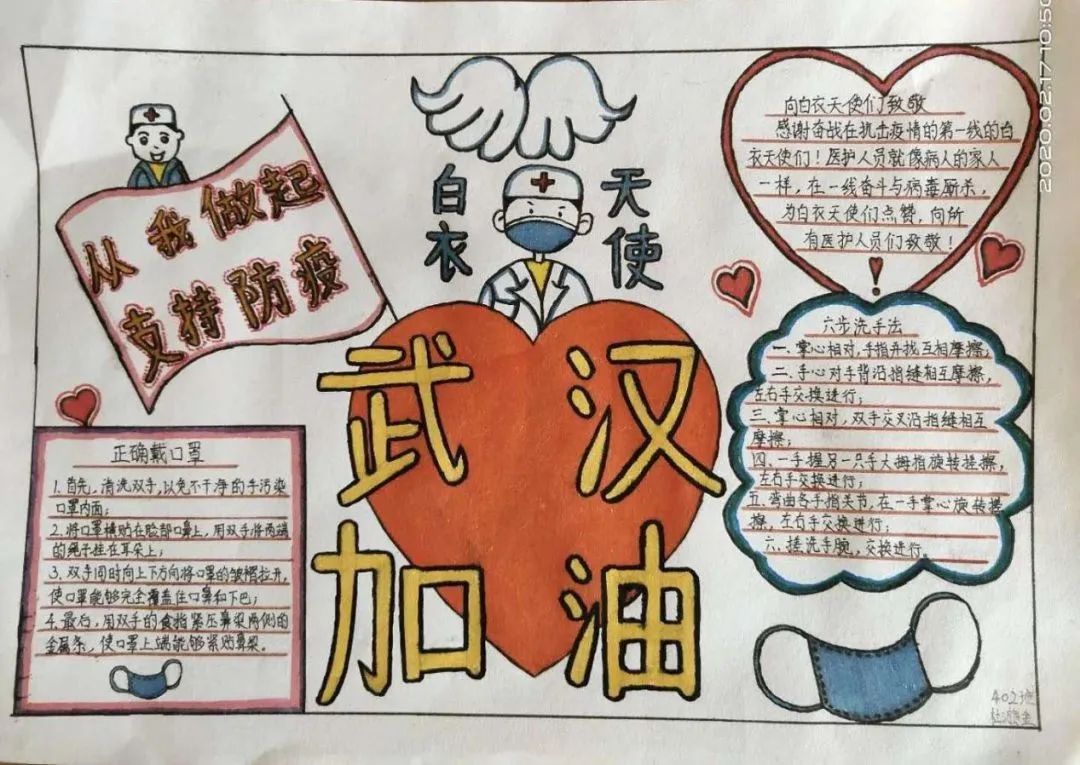 从我做起
支持防疫
白衣
天使
武汉
加油
向白衣天使们致敬
感谢奋战在抗击疫情的第一线的白
衣天使们！医护人员就像病人的家人
一样，在一线奋斗与病毒厮杀，
为白衣天使们点赞，向所
有医护人员们致敬！
六步洗手法
一、掌心相对，手指并找互相摩擦；
二、手心对手背沿指缝相互摩擦，
左右手交换进行；
三、掌心相对，双手交叉沿指缝相互
摩擦；
四、一手握另一只手大拇指旋转搓擦，
左右手交换进行；
五、弯曲各手指关节，在一手掌心旋转搓
擦，左右手交换进行；
六、搓洗手腕，交换进行。
正确戴口罩
1.首先，清洗双手，以免不干净的手污染
口罩内面；
2.将口罩横贴在脸部口鼻上，用双手将两端
的绳子挂在耳朵上；
3.双手同时向上下方向将口罩的皱褶拉开，
使口罩能够完全覆盖住口鼻和下巴；
4.最后，用双手的食指紧压鼻梁两侧的
金属条，使口罩上端能够紧贴鼻梁。
402班
2020.02.17 10:50